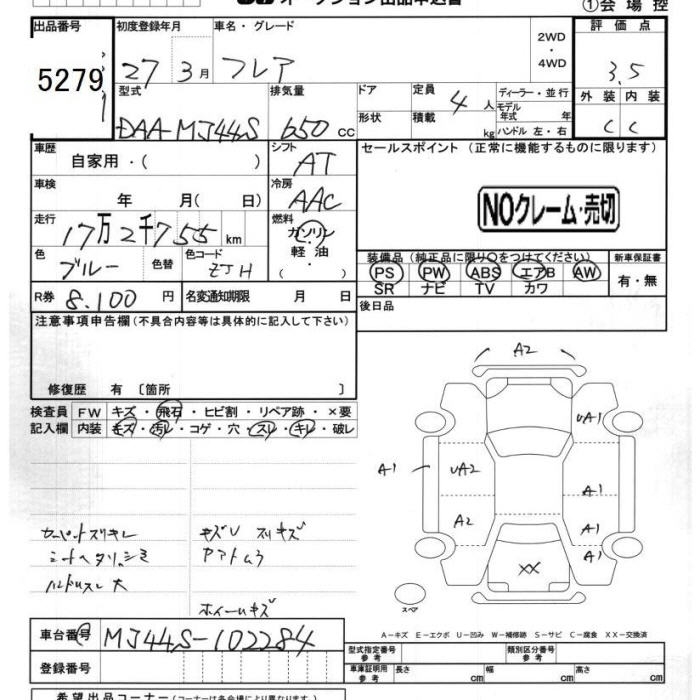 ①会場控
出品番号 初度登録年月 車名・グレード 2WD・4WD 評価点
5279 27年3月 フレア 3.5
型式 排気量 ドア 定員 4人 ディーラー・並行 外装 内装
形状 積載 kg モデル年式 年 ハンドル 左・右
DAA-MJ44S 650cc C C
車歴 自家用・( ) シフト AT セールスポイント(正常に機能するものに限ります)
車検 年 月( 日) 冷房 AAC
NOクレーム・売切
走行 17万2千755km 燃料 ガソリン・軽油・( )
色 ブルー 色替 色コード ZJH
装備品(純正品に限り○をつけてください) 新車保証書
PS PW ABS エアB AW 有・無
SR ナビ TV カワ
R券 8.100円 名変通知期限 月 日 後日品
注意事項申告欄(不具合内容等は具体的に記入して下さい)
修復歴 有 〔箇所 〕
検査員 FW キズ・飛石・ヒビ割・リペア跡・×要
記入欄 内装 キズ・汚レ・コゲ・穴・スレ・キレ・破レ
A2
UA1
A1 UA2 A1
A2 A1
A1
XX
スペア
カーペットスリキレ キズU スリキズ
シートヘタリ,シミ
ハンドルスレ大
ホイールキズ
A-キズ E-エクボ U-凹み W-補修跡 S-サビ C-腐食 XX-交換済
車台番号 MJ44S-102284
登録番号
型式指定番号 参考 類別区分番号 参考
車庫証明用 参考 長さ cm 幅 cm 高さ cm
希望出品コーナー(コーナーは各会場により異なります)